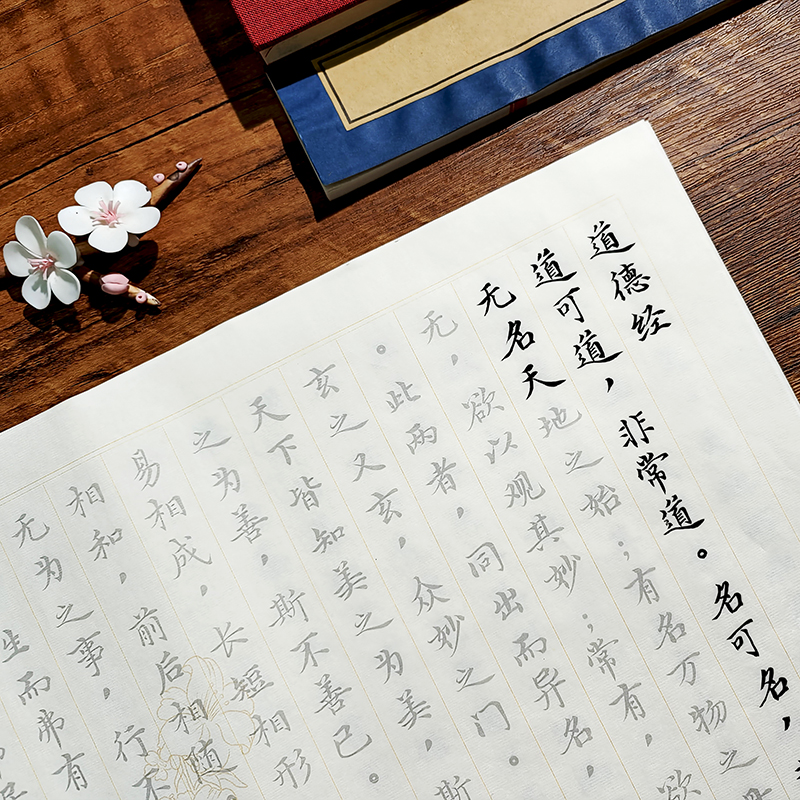 道德经
道可道，非常道。名可名，
无名天地之始；有名万物之
无，欲以观其妙；常有，欲
。此两者，同出而异名，
玄之又玄，众妙之门。
天下皆知美之为美，斯
之为善，斯不善已。
易相成，长短相形
相和，前后相随
无为之事，行不
生而弗有